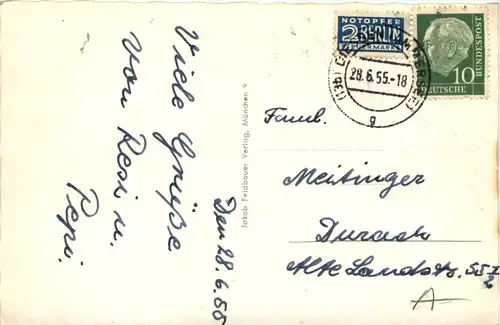 Viele Grüße
von Resi u.
Pepi.
Den 28.6.55
Jakob Feldbauer Verlag, München 9
NOTOPFER
2 BERLIN
STEUERMARKE
DEUTSCHE
BUNDESPOST
10
(13b)
28.6.55.-18
g
Faml.
Meitinger
Durach
Alte Landstr.